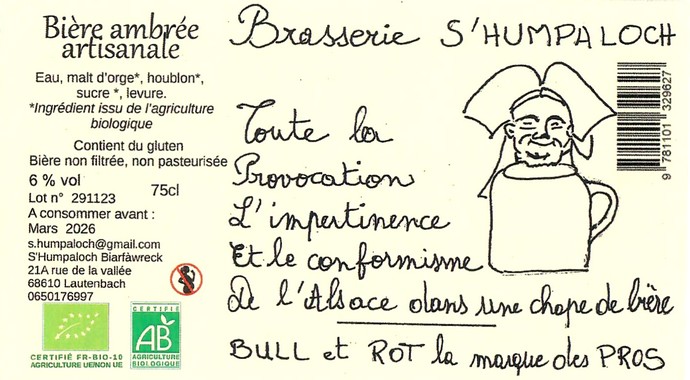 Bière ambrée
artisanale
Eau, malt d'orge*, houblon*,
sucre *, levure.
*Ingrédient issu de l'agriculture
biologique
Contient du gluten
Bière non filtrée, non pasteurisée
6 % vol
75cl
Lot n° 291123
A consommer avant :
Mars 2026
s.humpaloch@gmail.com
S'Humpaloch Biarfàwreck
21A rue de la vallée
68610 Lautenbach
0650176997
CERTIFIÉ FR-BIO-10
AGRICULTURE UE/NON UE
CERTIFIÉ
AB
AGRICULTURE
BIOLOGIQUE
Brasserie S'HUMPALOCH
Toute la
Provocation
L'impertinence
Et le conformisme
De l'Alsace dans une chope de bière
BULL et ROT la marque des PROS
9 781101 329627